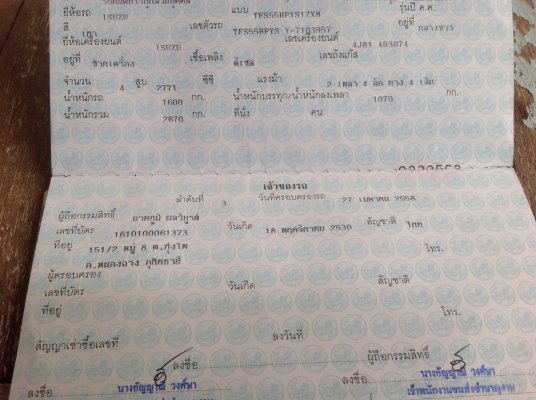 ยี่ห้อรถ ISUZU แบบ TFS55HPYS12XM รุ่นปี ค.ศ.
สี เทา เลขตัวรถ TFS55HPYS Y-7103957 อยู่ที่ กลางขวา
ยี่ห้อเครื่องยนต์ ISUZU เลขเครื่องยนต์ 4JB1 AD3074
อยู่ที่ ซ้ายเครื่อง เชื้อเพลิง ดีเซล เลขถังแก๊ส
จำนวน 4 สูบ 2771 ซีซี แรงม้า 2 เพลา 4 ล้อ ยาง 4 เส้น
น้ำหนักรถ 1600 กก. น้ำหนักบรรทุก/น้ำหนักลงเพลา 1070 กก.
น้ำหนักรวม 2670 กก. ที่นั่ง คน
เจ้าของรถ
ลำดับที่ 3 วันที่ครอบครองรถ 27 เมษายน 2558
ผู้ถือกรรมสิทธิ์
เลขที่บัตร 1610100061373 วันเกิด 18 พฤศจิกายน 2530 สัญชาติ ไทย
ที่อยู่ 151/2 หมู่ 8 ต.ทุ่งโพ โทร.
อ.หนองฉาง อุทัยธานี
ผู้ครอบครอง
เลขที่บัตร วันเกิด สัญชาติ
ที่อยู่ โทร.
สัญญาเช่าซื้อเลขที่ ลงวันที่
ลงชื่อ ผู้ถือกรรมสิทธิ์
ลงชื่อ นางอัญญาณี วงศ์ษา ลงชื่อ นางอัญญาณี วงศ์ษา
เจ้าพนักงานขนส่งชำนาญงาน